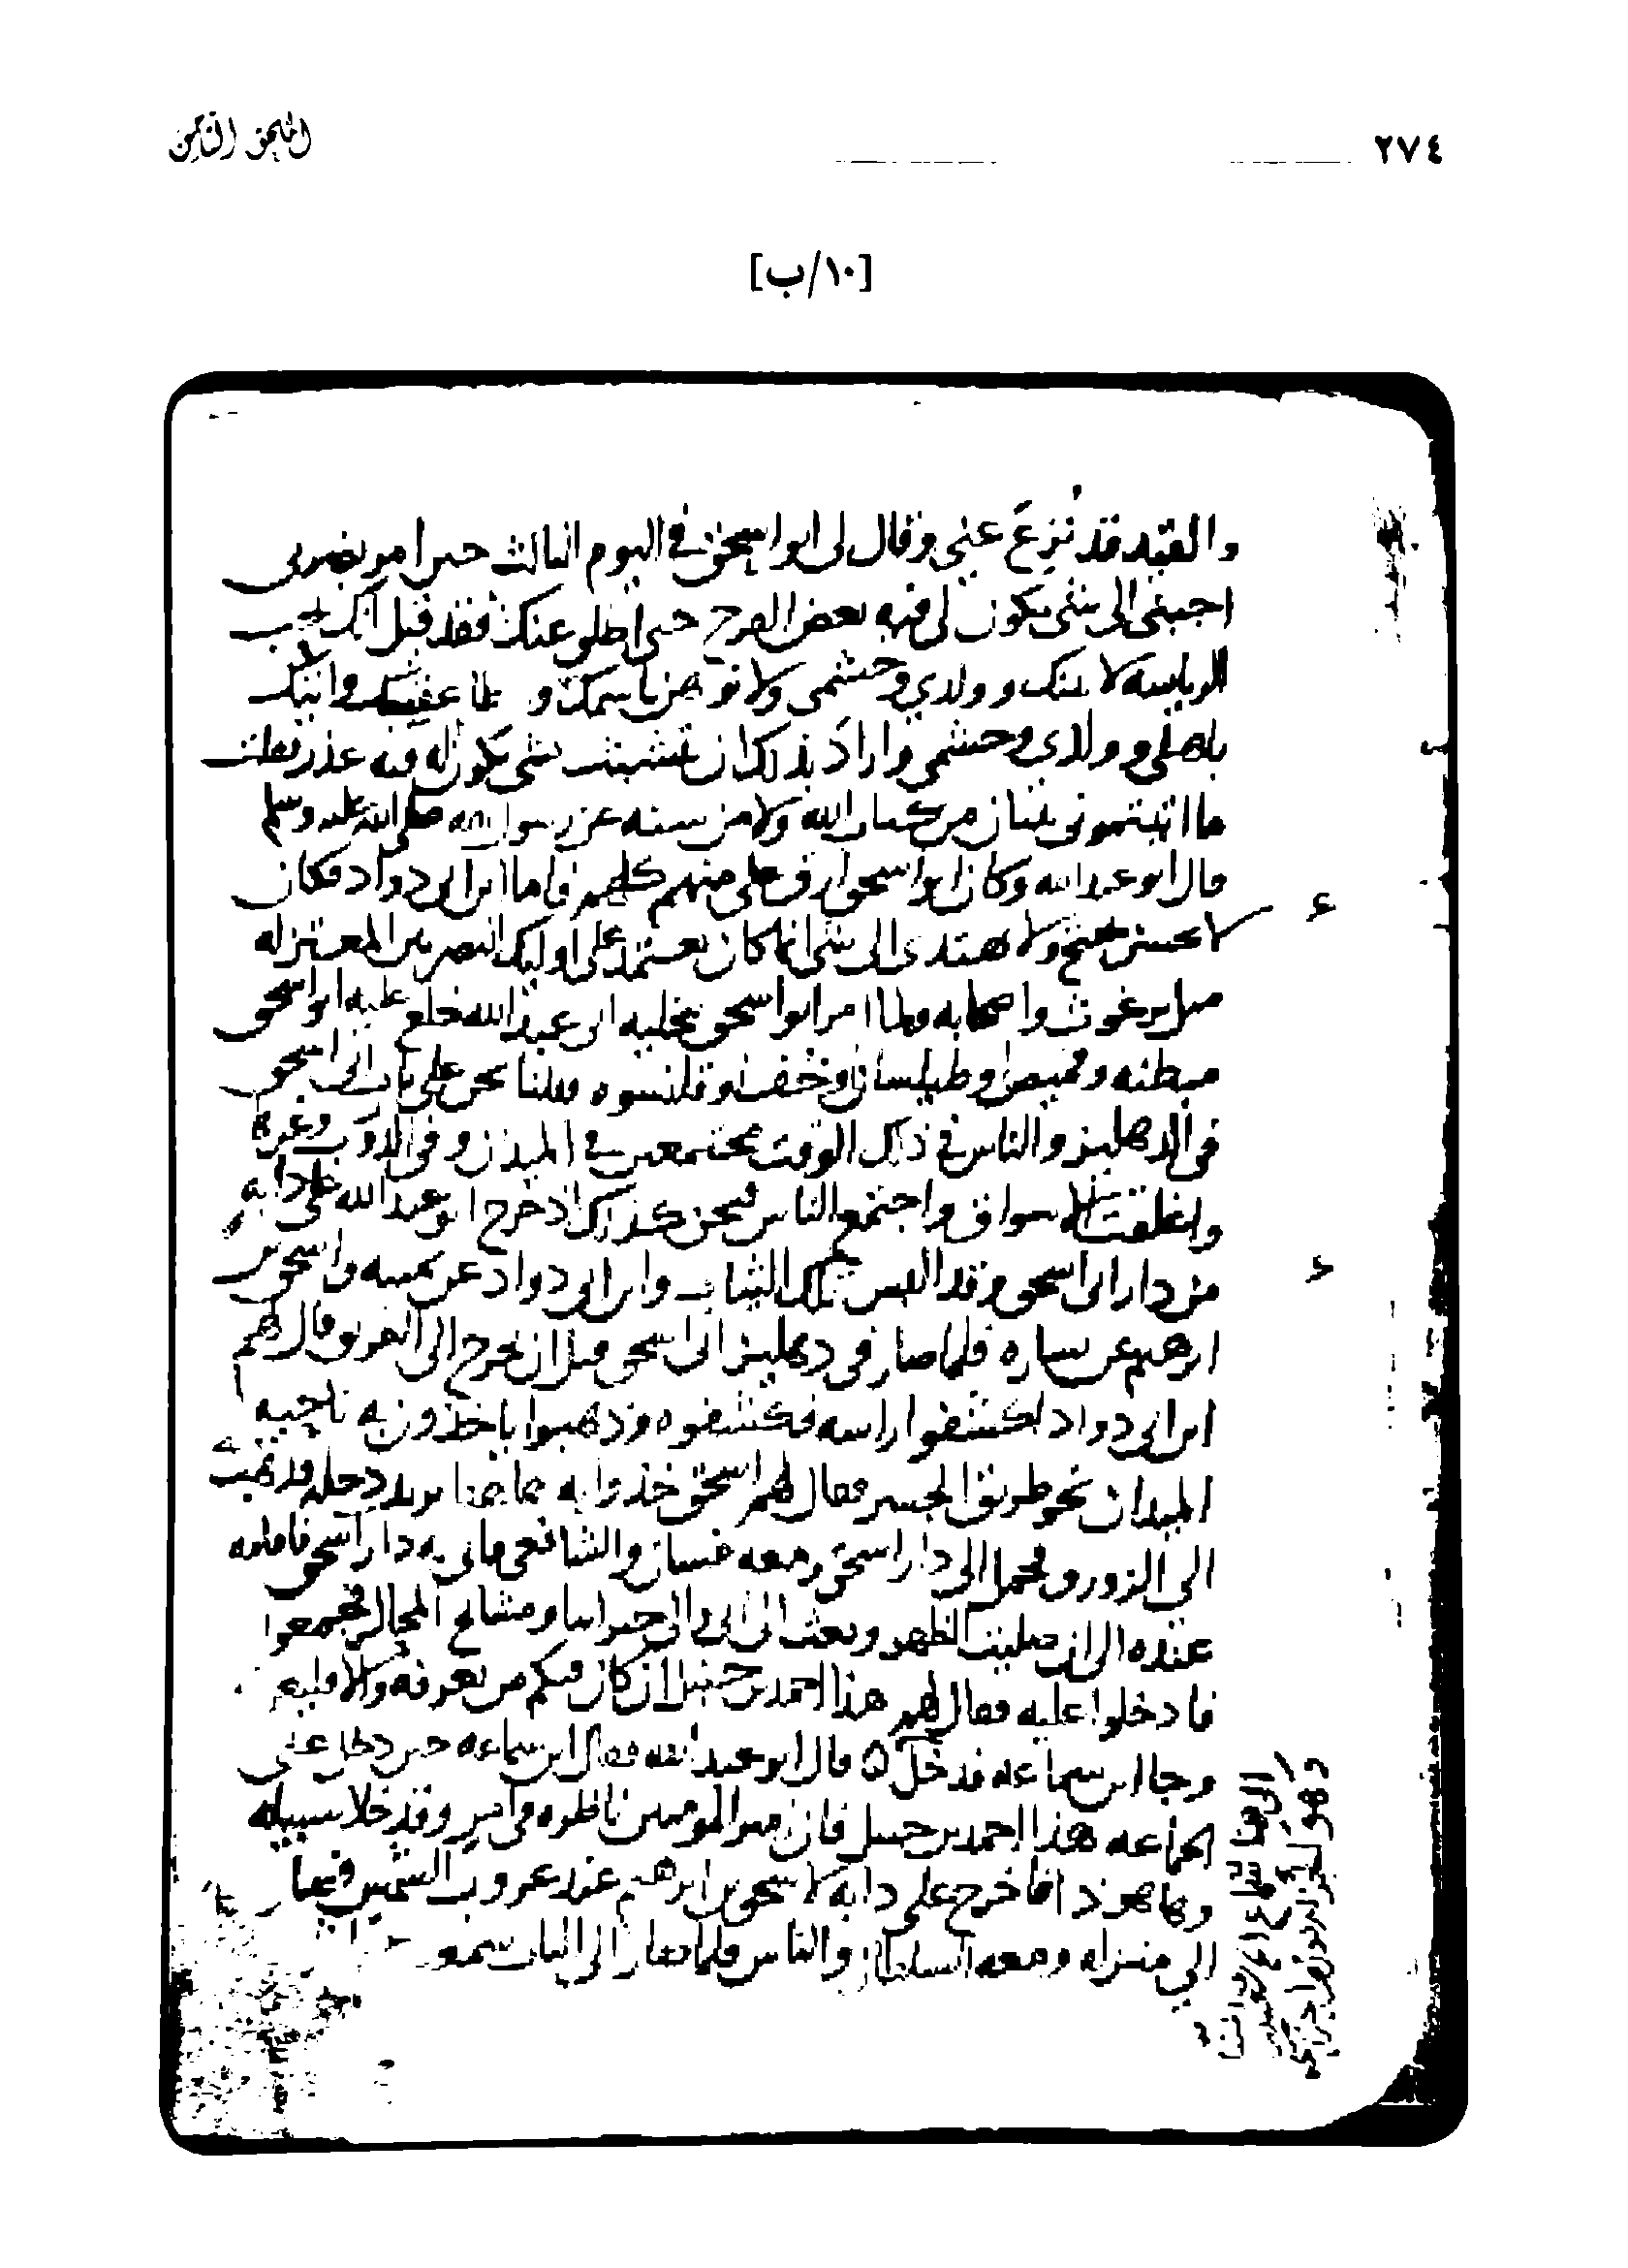 ٢٧٤
الملحق الثامن
[١٠/ب]
والقيد قد نُزِعَ عني وقال لي ابو اسحق في اليوم الثالث حين امر بضربي
اجبني الى شي يكون لي فيه بعض الفرج حتى اطلق عنك فقد قيل انك تحب
الرياسة لا منك وولدي وحشمي ولا نوهن باسمك و عقبك واتينك
باهلي وولدي وحشمي واراد بذلك ان تشبث بشي يكون له فيه عذر فقلت
ما اتيتموني ببيان من كتاب الله ولا من سنه عن رسول الله صلى الله عليه وسلم
قال ابو عبد الله وكان ابو اسحق ارق علي منهم كلهم فاما ابن ابي دواد فكان
لا يحسن يحتج ولا يهتدي الى شي انما كان يعتمد على اوليك البصريين المعتزله
مثل برغوث واصحابه ولما امر ابو اسحق بتخليه ابي عبد الله خلع عليه ابو اسحق
مبطنه وقميص وطيلسان وخف وقلنسوه فبينا نحن على باب ابي اسحق
في الدهليز والناس في ذلك الوقت مجتمعين في الميدان وفي الدروب وغيرها
واغلقت الاسواق واجتمع الناس فنحن كذلك اذ خرج ابو عبد الله على دابه
من دار ابي اسحق وقد البس تلك الثياب وابن ابي دواد عن يمينه واسحق بن
ابرهيم عن يساره فلما صار في دهليز ابي اسحق قبل ان يخرج الى الطريق قال لهم
ابن ابي دواد اكشفوا راسه فكشفوه وذهبوا ياخذون به ناحيه
الميدان نحو طريق الجسر فقال لهم اسحق خذوا به هاهنا يريد دجله فذهب به
الي الزورق فحمل الى دار اسحق ومعه غسان والشافعي فاتى به دار اسحق فاقامه
عنده الى ان صليت الظهر وبعث الى ابي والى جيراننا ومشايخ المحال فجمعوا
فادخلوا عليه فقال لهم هذا احمد بن حنبل ان كان فيكم من يعرفه والا فليعرفه
وجا ابن سماعه فدخل ٥ قال ابو عبد الله فقال ابن سماعه حين دخل عني
الجماعه هذا احمد بن حنبل فان امير المومنين ناظره في امره وقد خلا سبيله
وها هو ذا فاخرج على دابه لاسحق بن ابرهيم عند غروب الشمس فصار
الي منزله ومعه السلطان والناس فلما صار الى الباب